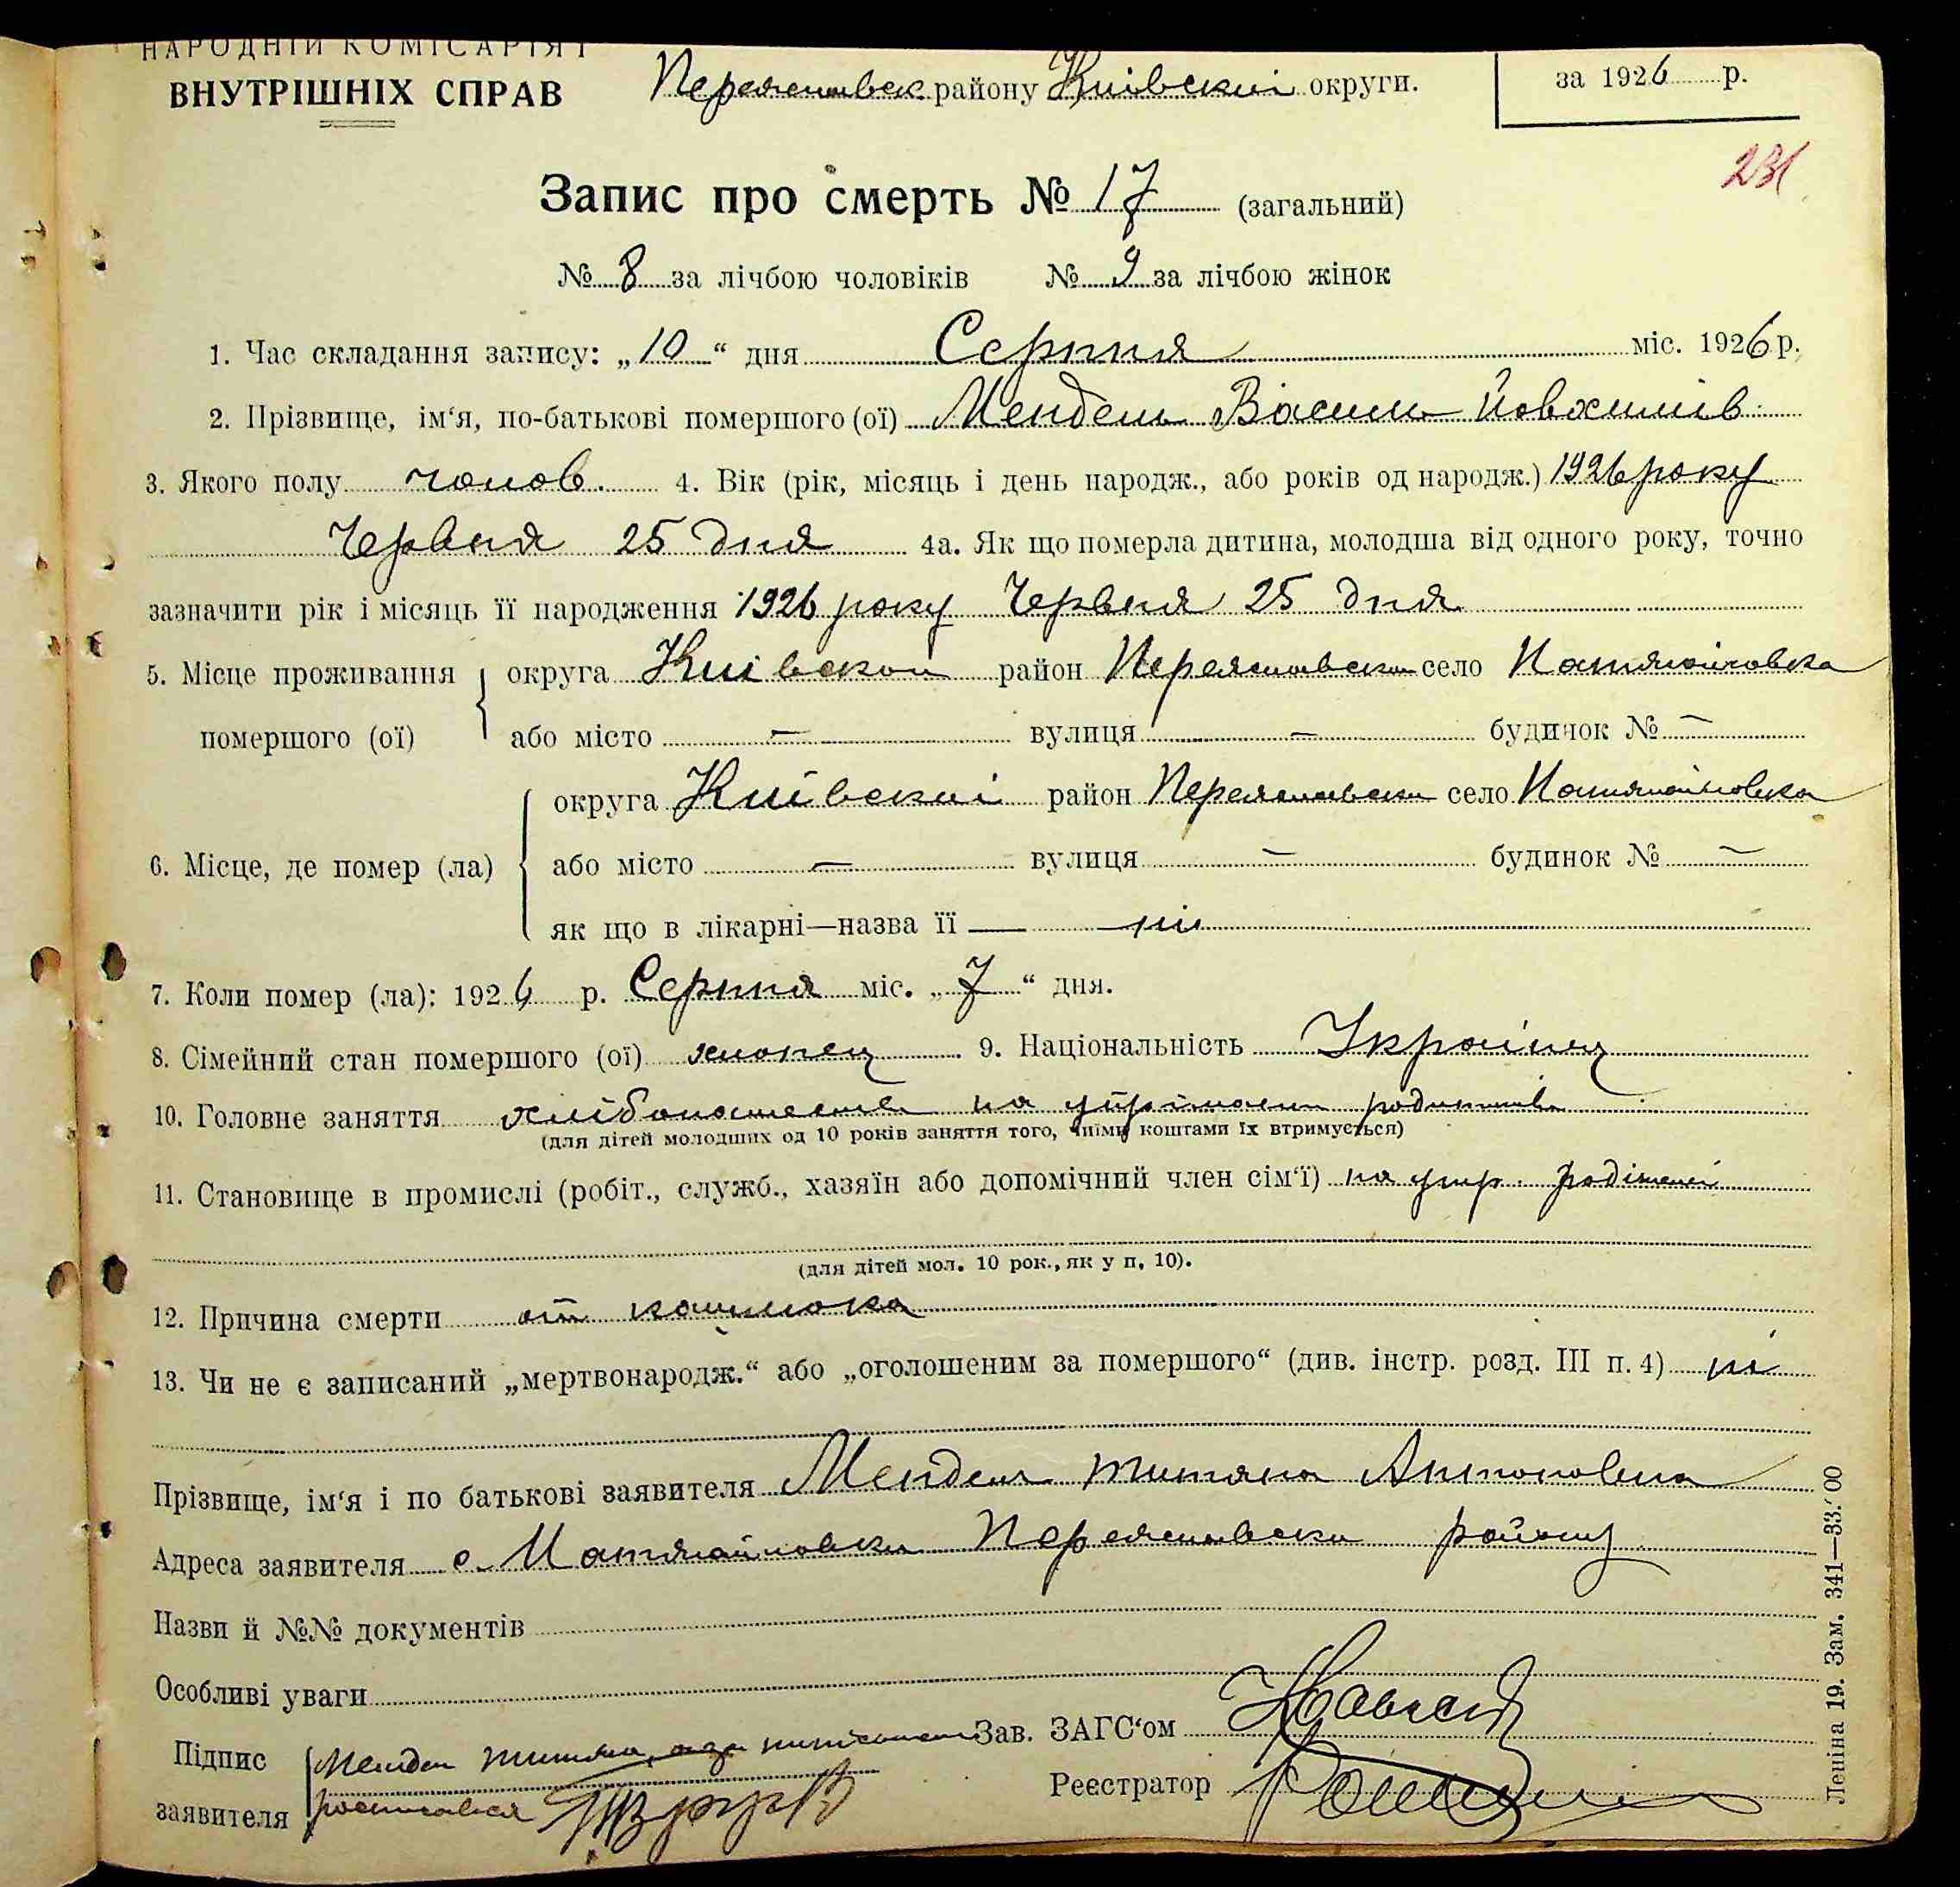 НАРОДНІЙ КОМІСАРІЯТ
ВНУТРІШНІХ СПРАВ Переяславск району Київскиі округи. за 1926 р.
231
Запис про смерть № 17 (загальний)
№ 8 за лічбою чоловіків № 9 за лічбою жінок
1. Час складання запису: „10“ дня Серпня міс. 1926 р.
2. Прізвище, ім‘я, по-батькові помершого (ої) Мендель Васил Йовхимів
3. Якого полу чолов. 4. Вік (рік, місяць і день народж., або років од народж.) 1926 року
Червня 25 дня 4а. Як що померла дитина, молодша від одного року, точно
зазначити рік і місяць її народження 1926 року Червня 25 дня
5. Місце проживання округа Київскои район Переяславски село
помершого (ої) або місто — вулиця — будинок № —
округа Київскиі район Переяславски село
6. Місце, де помер (ла) або місто — вулиця — будинок № —
як що в лікарні—назва її — ні
7. Коли помер (ла): 1926 р. Серпня міс. „7“ дня.
8. Сімейний стан помершого (ої) хлопец 9. Національність Україиец
10. Головне заняття на родителів
(для дітей молодших од 10 років заняття того, чиїми коштами їх втримується)
11. Становище в промислі (робіт., служб., хазяїн або допомічний член сім‘ї) на утр. родителей
(для дітей мол. 10 рок., як у п. 10).
12. Причина смерти от кашлюка
13. Чи не є записаний „мертвонародж.“ або „оголошеним за помершого“ (див. інстр. розд. III п. 4) ні
Прізвище, ім‘я і по батькові заявителя Мендель Титяна Антоновна
Адреса заявителя с. Переяславски району
Назви й №№ документів
Особливі уваги
Підпис Мендел Титяна, а за Зав. ЗАГС‘ом
заявителя росписався Реєстратор
Леніна 19. Зам. 341—33.